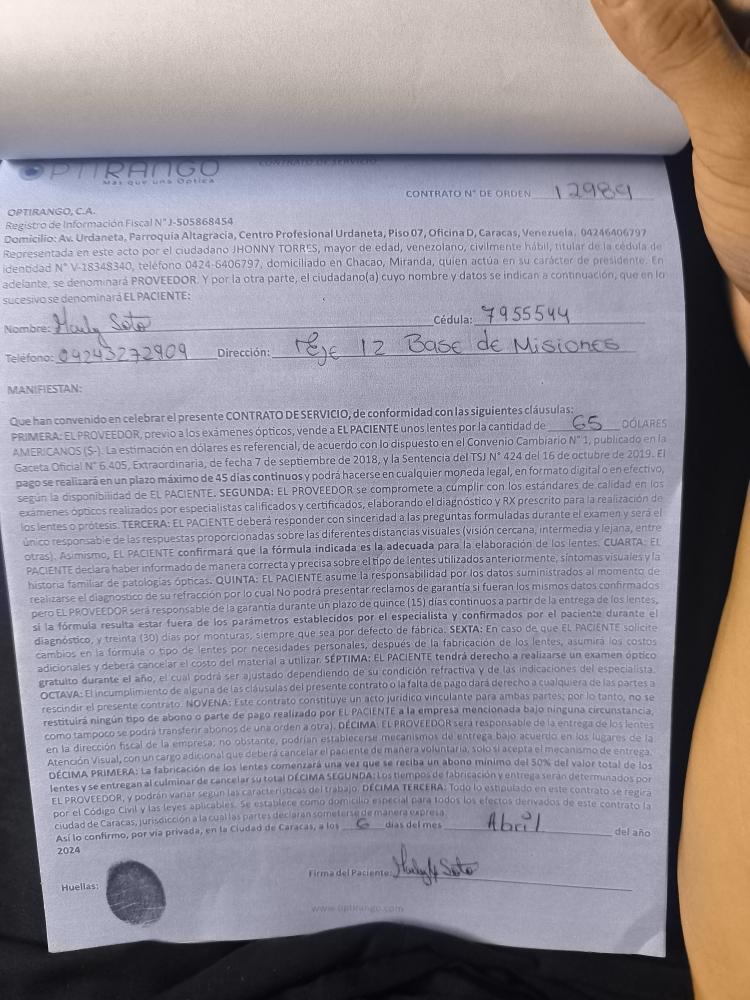 OPTIRANGO
Más que una Óptica
CONTRATO DE SERVICIO
CONTRATO N° DE ORDEN 12989
OPTIRANGO, C.A.
Registro de Información Fiscal N° J-505868454
Domicilio: Av. Urdaneta, Parroquia Altagracia, Centro Profesional Urdaneta, Piso 07, Oficina D, Caracas, Venezuela, 04246406797
Representada en este acto por el ciudadano JHONNY TORRES, mayor de edad, venezolano, civilmente hábil, titular de la cédula de
identidad N° V-18348340, teléfono 0424-6406797, domiciliado en Chacao, Miranda, quien actúa en su carácter de presidente. En
adelante, se denominará PROVEEDOR. Y por la otra parte, el ciudadano(a) cuyo nombre y datos se indican a continuación, que en lo
sucesivo se denominará EL PACIENTE:
Nombre: Soto Cédula: 7955544
Teléfono: 04243272909 Dirección: Eje 12 Base de Misiones
MANIFIESTAN:
Que han convenido en celebrar el presente CONTRATO DE SERVICIO, de conformidad con las siguientes cláusulas:
PRIMERA: EL PROVEEDOR, previo a los exámenes ópticos, vende a EL PACIENTE unos lentes por la cantidad de 65 DÓLARES
AMERICANOS (S-). La estimación en dólares es referencial, de acuerdo con lo dispuesto en el Convenio Cambiario N° 1, publicado en la
Gaceta Oficial N° 6.405, Extraordinaria, de fecha 7 de septiembre de 2018, y la Sentencia del TSJ N° 424 del 16 de octubre de 2019. El
pago se realizará en un plazo máximo de 45 días continuos y podrá hacerse en cualquier moneda legal, en formato digital o en efectivo,
según la disponibilidad de EL PACIENTE. SEGUNDA: EL PROVEEDOR se compromete a cumplir con los estándares de calidad en los
exámenes ópticos realizados por especialistas calificados y certificados, elaborando el diagnóstico y RX prescrito para la realización de
los lentes o prótesis. TERCERA: EL PACIENTE deberá responder con sinceridad a las preguntas formuladas durante el examen y será el
único responsable de las respuestas proporcionadas sobre las diferentes distancias visuales (visión cercana, intermedia y lejana, entre
otras). Asimismo, EL PACIENTE confirmará que la fórmula indicada es la adecuada para la elaboración de los lentes. CUARTA: EL
PACIENTE declara haber informado de manera correcta y precisa sobre el tipo de lentes utilizados anteriormente, síntomas visuales y la
historia familiar de patologías ópticas. QUINTA: EL PACIENTE asume la responsabilidad por los datos suministrados al momento de
realizarse el diagnostico de su refracción por lo cual No podrá presentar reclamos de garantía si fueran los mismos datos confirmados
pero EL PROVEEDOR será responsable de la garantía durante un plazo de quince (15) días continuos a partir de la entrega de los lentes,
si la fórmula resulta estar fuera de los parámetros establecidos por el especialista y confirmados por el paciente durante el
diagnóstico, y treinta (30) días por monturas, siempre que sea por defecto de fábrica. SEXTA: En caso de que EL PACIENTE solicite
cambios en la fórmula o tipo de lentes por necesidades personales, después de la fabricación de los lentes, asumirá los costos
adicionales y deberá cancelar el costo del material a utilizar. SÉPTIMA: EL PACIENTE tendrá derecho a realizarse un examen óptico
gratuito durante el año, el cual podrá ser ajustado dependiendo de su condición refractiva y de las indicaciones del especialista.
OCTAVA: El incumplimiento de alguna de las cláusulas del presente contrato o la falta de pago dará derecho a cualquiera de las partes a
rescindir el presente contrato. NOVENA: Este contrato constituye un acto jurídico vinculante para ambas partes; por lo tanto, no se
restituirá ningún tipo de abono o parte de pago realizado por EL PACIENTE a la empresa mencionada bajo ninguna circunstancia,
como tampoco se podrá transferir abonos de una orden a otra). DÉCIMA: EL PROVEEDOR será responsable de la entrega de los lentes
en la dirección fiscal de la empresa; no obstante, podrían establecerse mecanismos de entrega bajo acuerdo en los lugares de la
Atención Visual, con un cargo adicional que deberá cancelar el paciente de manera voluntaria, solo si acepta el mecanismo de entrega.
DÉCIMA PRIMERA: La fabricación de los lentes comenzará una vez que se reciba un abono mínimo del 50% del valor total de los
lentes y se entregan al culminar de cancelar su total DÉCIMA SEGUNDA: Los tiempos de fabricación y entrega serán determinados por
EL PROVEEDOR, y podrán variar según las características del trabajo. DÉCIMA TERCERA: Todo lo estipulado en este contrato se regirá
por el Código Civil y las leyes aplicables. Se establece como domicilio especial para todos los efectos derivados de este contrato la
ciudad de Caracas, jurisdicción a la cual las partes declaran someterse de manera expresa.
Así lo confirmo, por vía privada, en la Ciudad de Caracas, a los 6 días del mes Abril del año
2024
Huellas:
Firma del Paciente: Soto
www.optirango.com